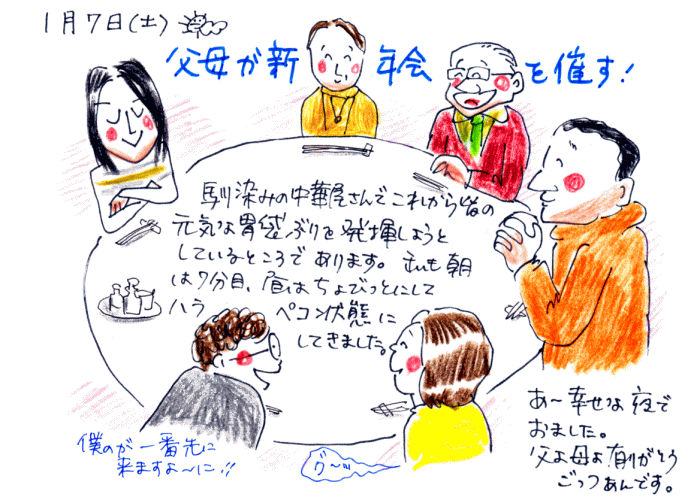 1月7日(土)
父母が新年会を催す!
馴染みの中華屋さんでこれから皆の
元気な胃袋ぶりを発揮しようと
しているところであります。私も朝
は7分目、昼はちょびっとにして
ハラペコ状態に
してきました。
僕のが一番先に
来ますよ〜に!!
グ〜ッ
あ〜幸せな夜で
おました。
父よ母よ有りがとう
ごっつぁんです。